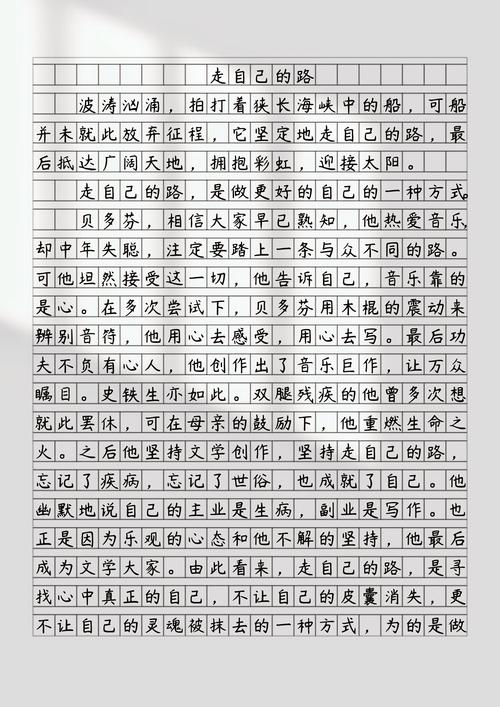 走自己的路
波涛汹涌，拍打着狭长海峡中的船，可船
并未就此放弃征程，它坚定地走自己的路，最
后抵达广阔天地，拥抱彩虹，迎接太阳。
走自己的路，是做更好的自己的一种方式。
贝多芬，相信大家早已熟知，他热爱音乐，
却中年失聪，注定要踏上一条与众不同的路。
可他坦然接受这一切，他告诉自己，音乐靠的
是心。在多次尝试下，贝多芬用木棍的震动来
辨别音符，他用心去感受，用心去写。最后功
夫不负有心人，他创作出了音乐巨作，让万众
瞩目。史铁生亦如此。双腿残疾的他曾多次想
就此罢休，可在母亲的鼓励下，他重燃生命之
火。之后他坚持文学创作，坚持走自己的路，
忘记了疾病，忘记了世俗，也成就了自己。他
幽默地说自己的主业是生病，副业是写作。也
正是因为乐观的心态和他不解的坚持，他最后
成为文学大家。由此看来，走自己的路，是寻
找心中真正的自己，不让自己的皮囊消失，更
不让自己的灵魂被抹去的一种方式，为的是做